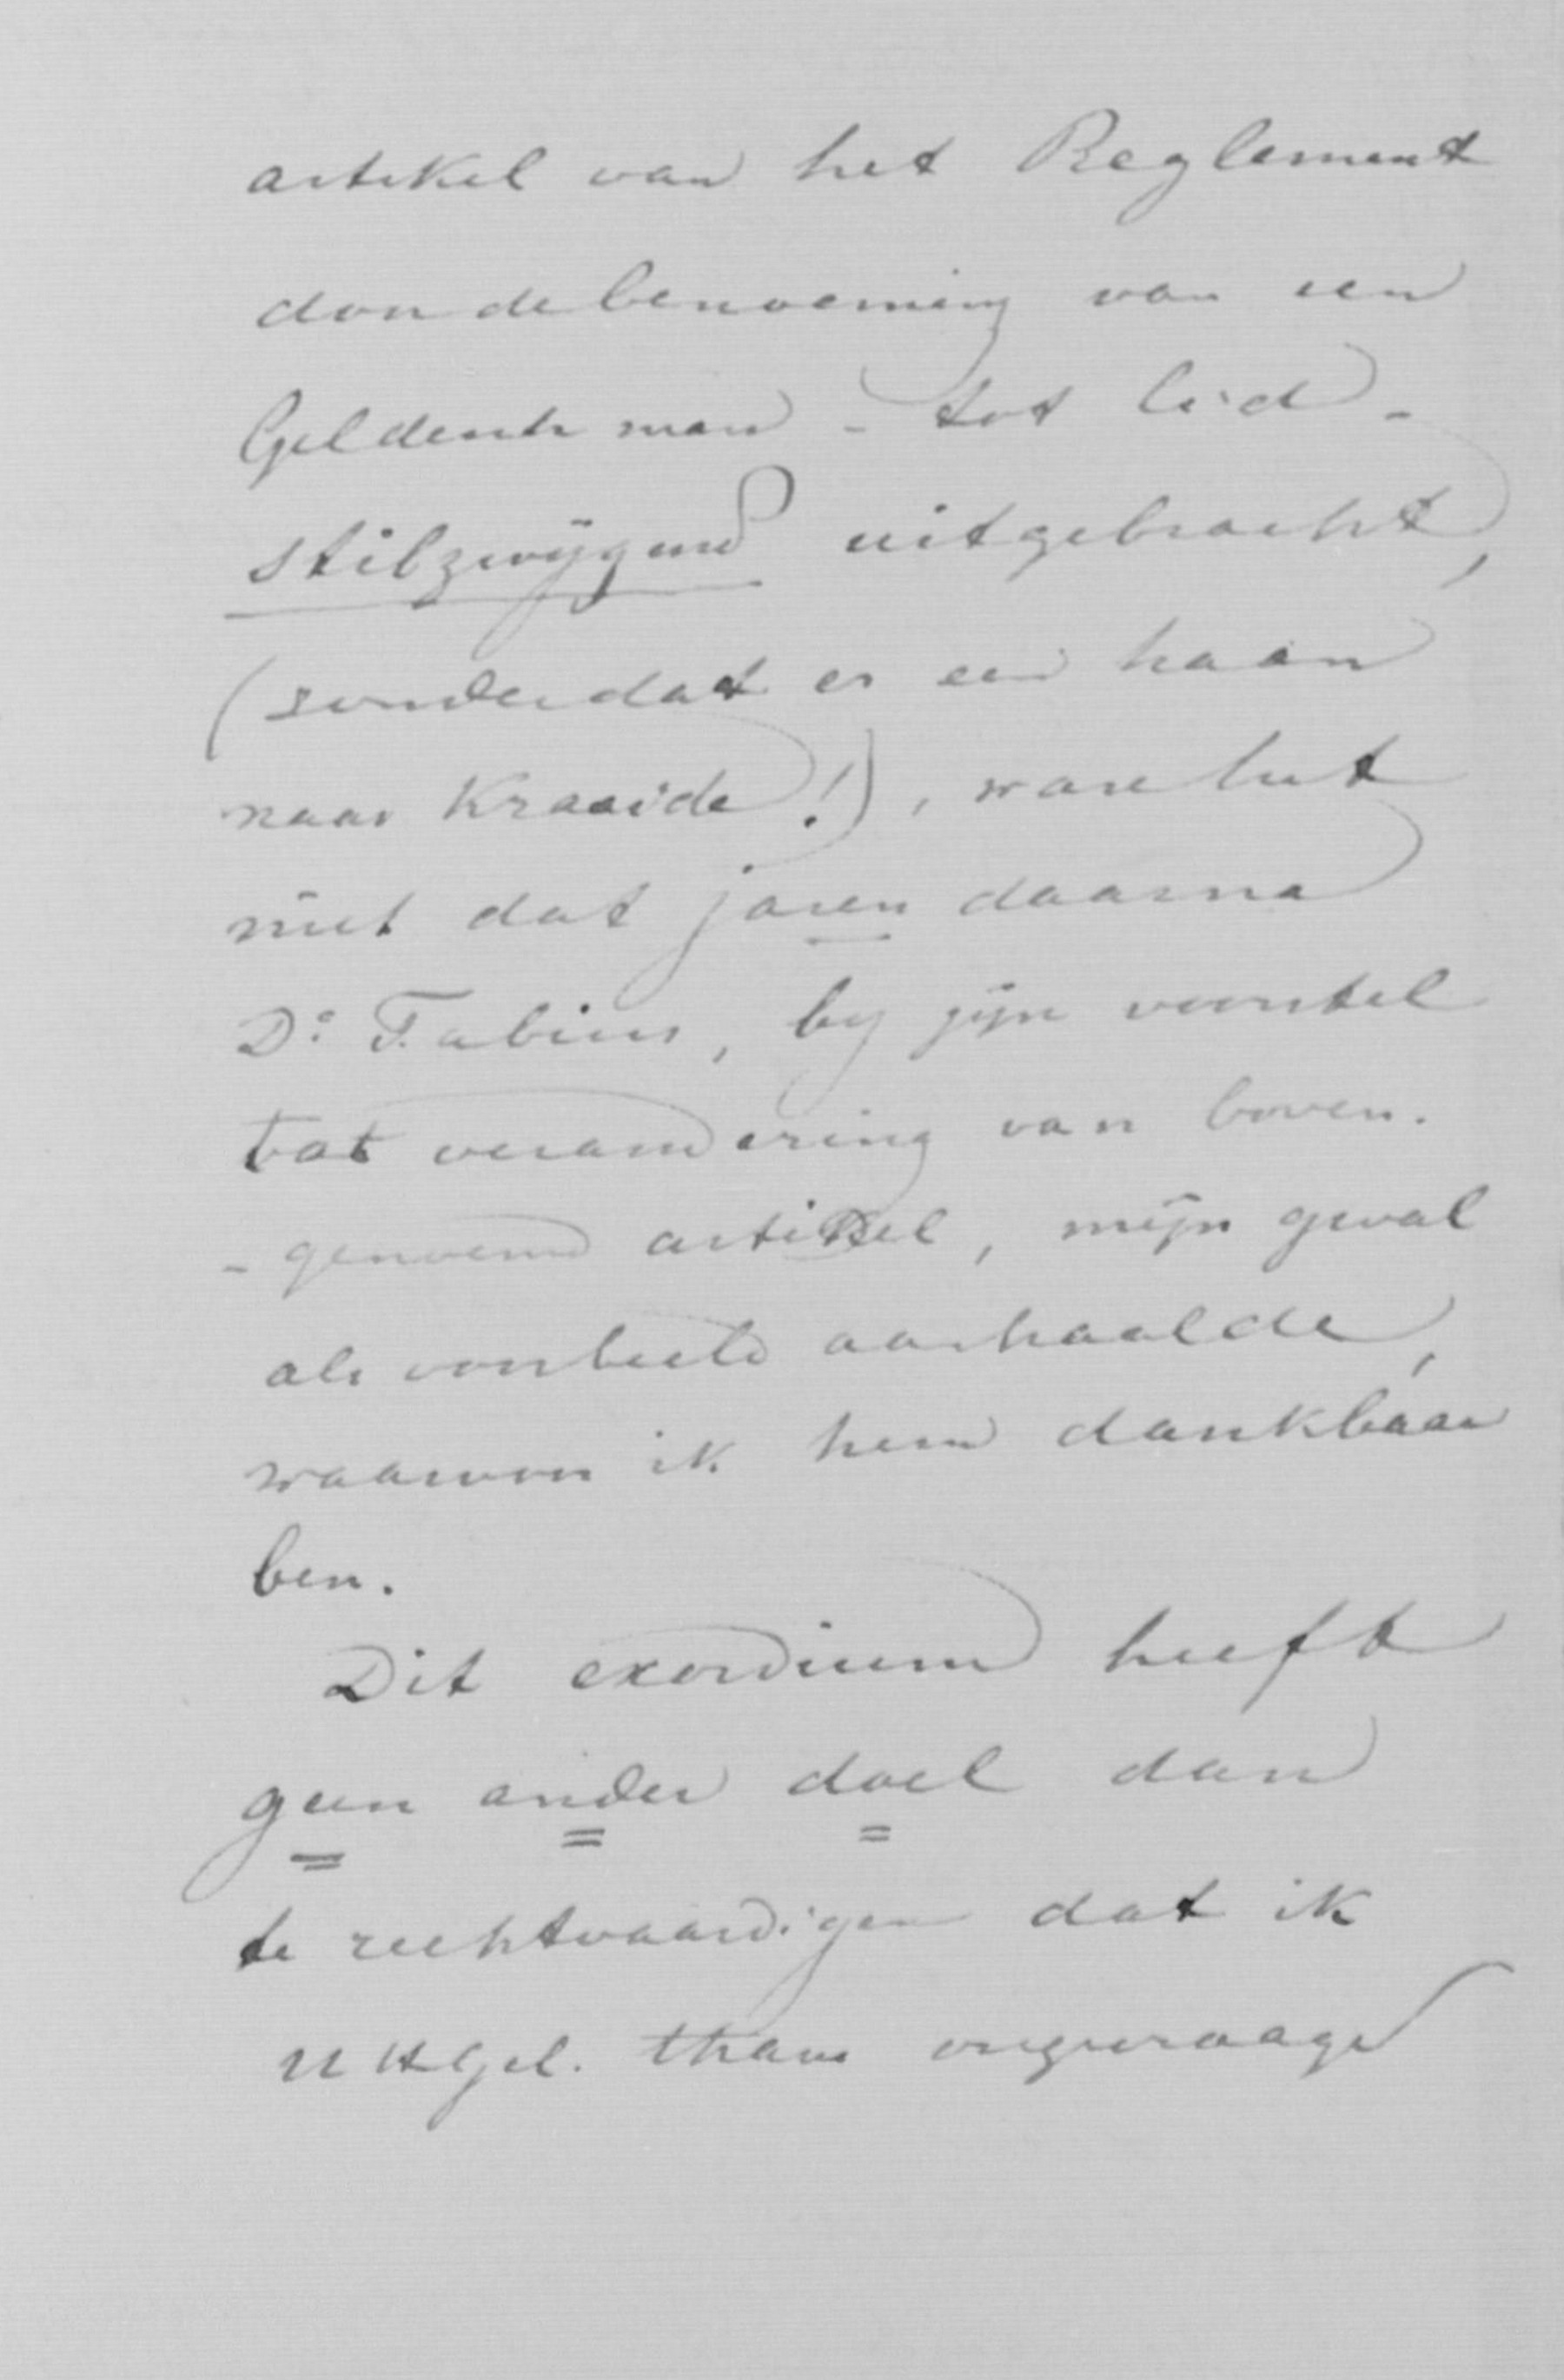 artikel van het Reglement
door de benoeming van een
Geldersch man - tot lid -
stilzwijgend uitgebracht,
(zonder dat er een haan
naar kraaide!), ware het
niet dat jaren daarna
Ds. Fabius, bij zijn voorstel
tot verandering van boven-
- genoemd artikel, mijn geval
als voorbeeld aanhaalde,
waarvoor ik hem dankbaar
ben.
Dit exordium heeft
geen ander doel dan
te rechtvaardigen dat ik
UHGel. thans ongevraagd